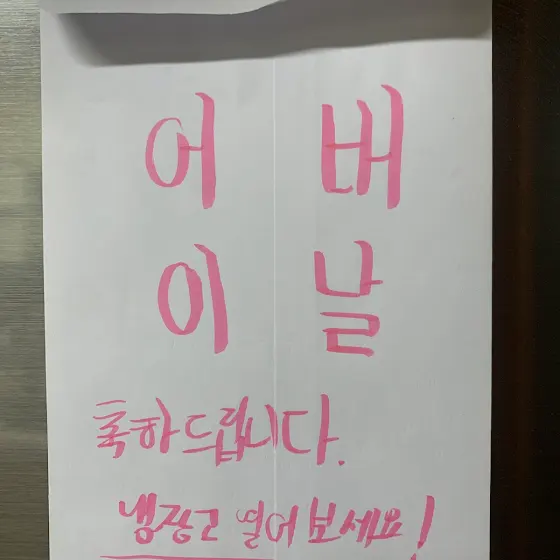 어 버
이 날
축하드립니다.
냉장고 열어보세요!